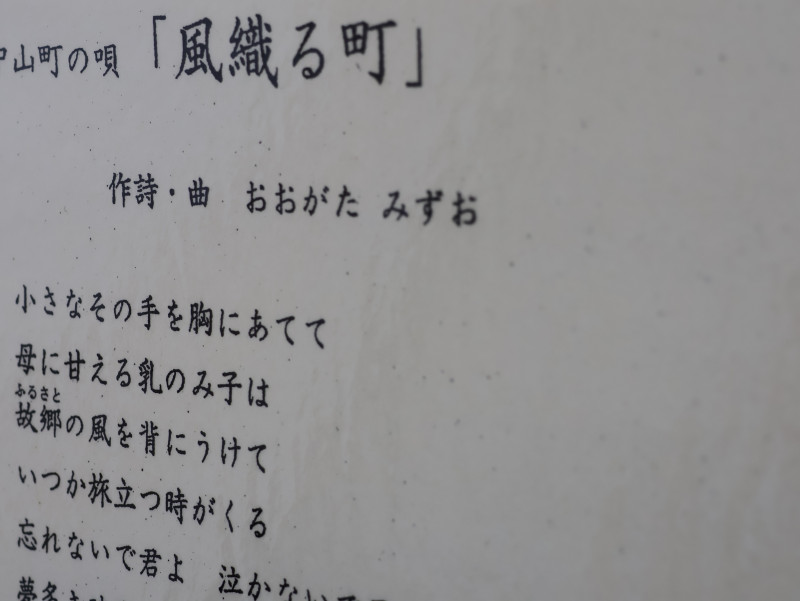 山町の唄 「風織る町」
作詩・曲 おおがた みずお
小さなその手を胸にあてて
母に甘える乳のみ子は
ふるさと
故郷の風を背にうけて
いつか旅立つ時がくる
忘れないで君よ 泣かない
夢多き